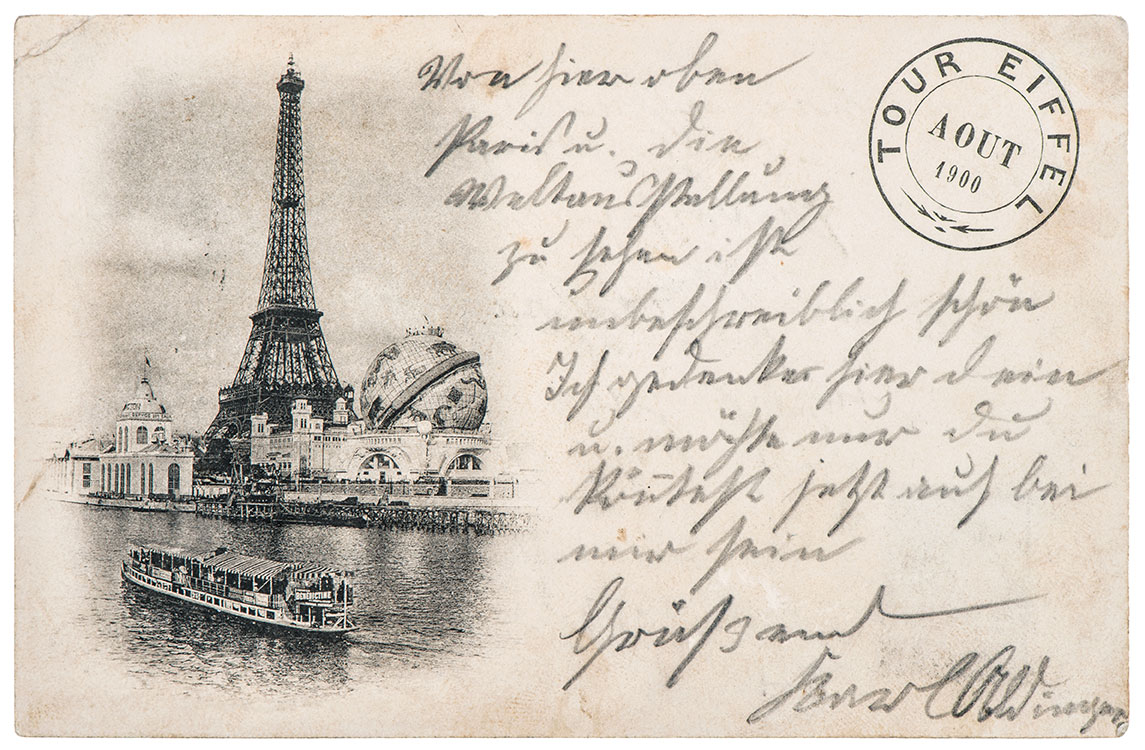 Von hier oben
Paris u. die
Weltausstellung
zu sehen ist
unbeschreiblich schön
Ich gedenke hier dein
u. möchte nur du
könntest jetzt auch bei
mir sein
Grüßend
Karl
TOUR EIFFEL
AOUT
1900
BENEDICTINE